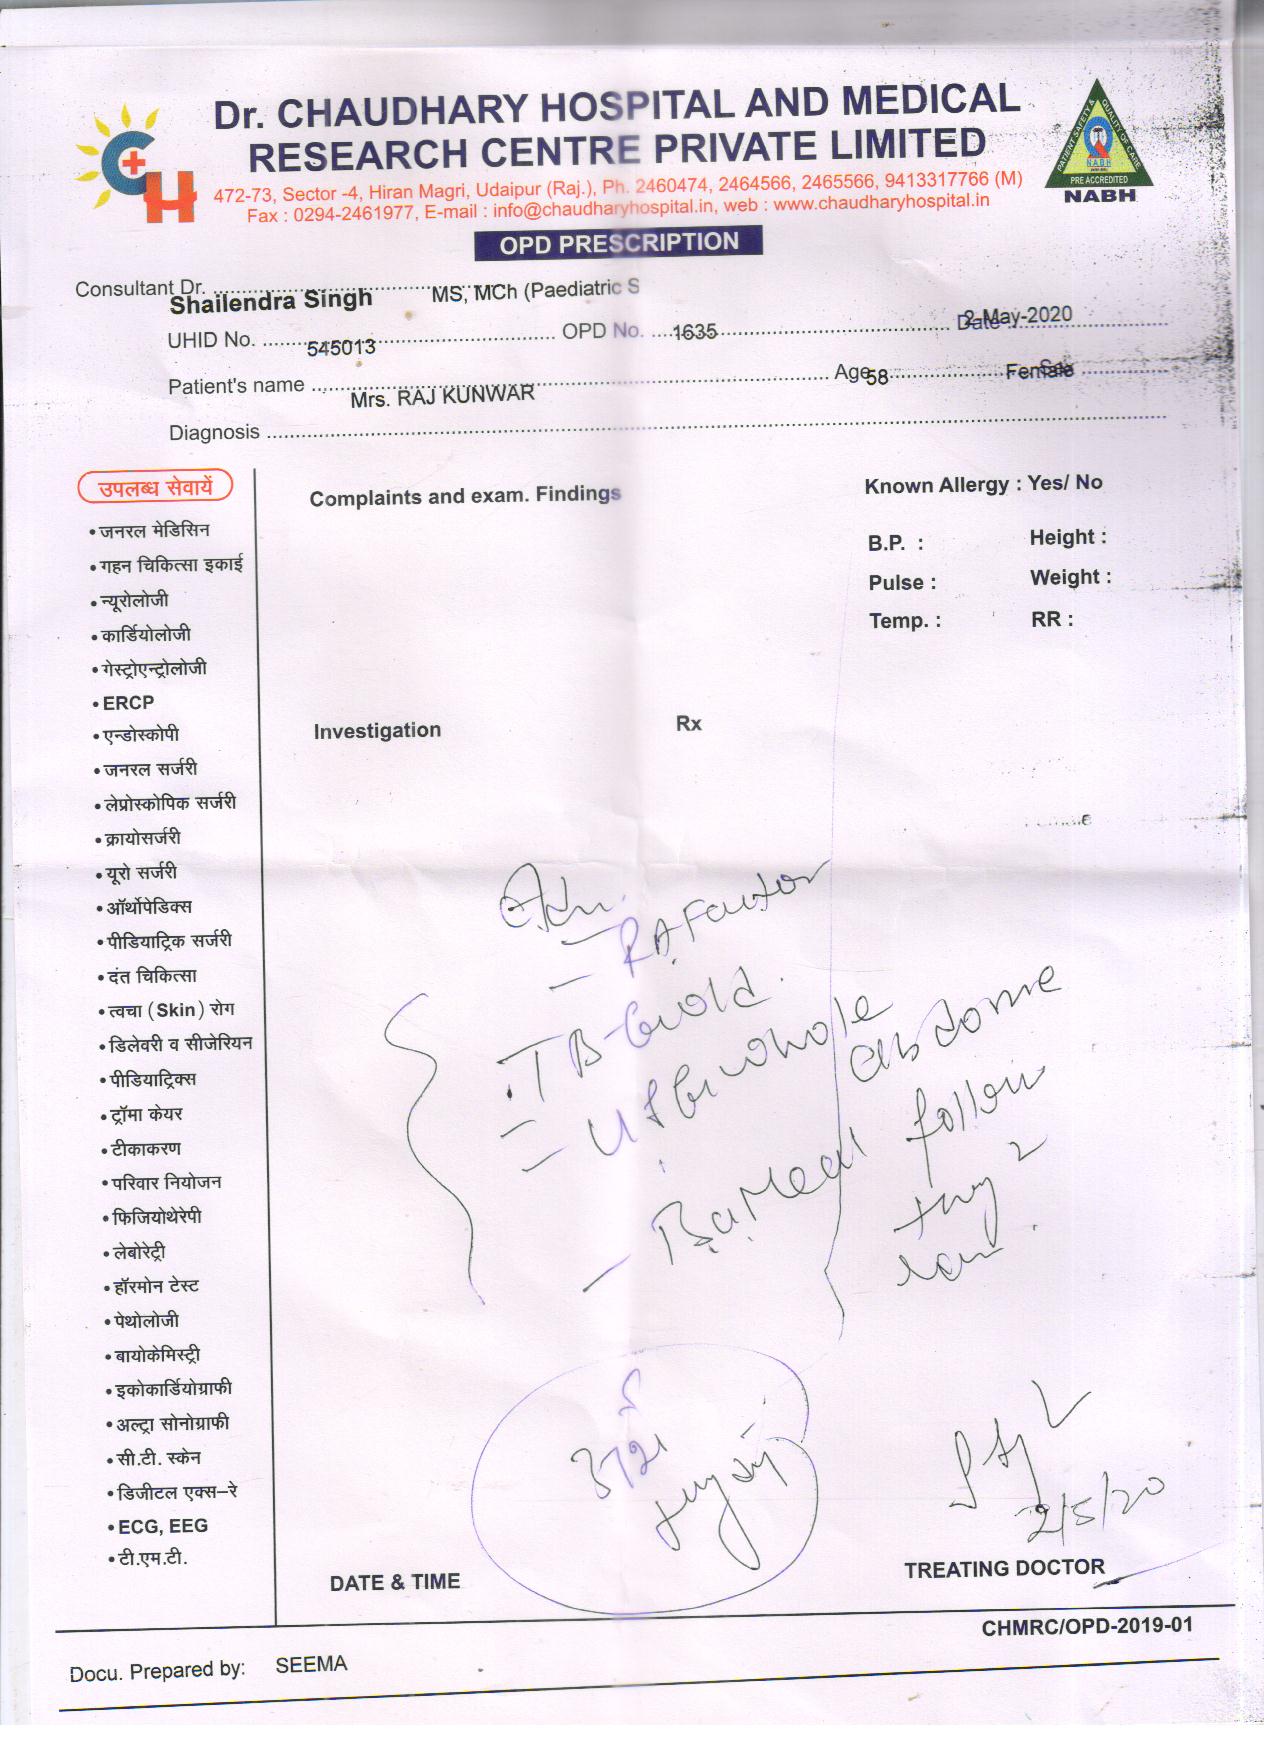 Dr. CHAUDHARY HOSPITAL AND MEDICAL
RESEARCH CENTRE PRIVATE LIMITED
472-73, Sector -4, Hiran Magri, Udaipur (Raj.), Ph. 2460474, 2464566, 2465566, 9413317766 (M)
Fax : 0294-2461977, E-mail : info@chaudharyhospital.in, web : www.chaudharyhospital.in
PATIENT SAFETY & QUALITY OF CARE
NABH
PRE ACCREDITED
NABH
OPD PRESCRIPTION
Consultant Dr. Shailendra Singh MS, MCh (Paediatric S
UHID No. 545013 OPD No. 1635 Date 2-May-2020
Patient's name Mrs. RAJ KUNWAR Age 58 Sex Female
Diagnosis
उपलब्ध सेवायें
• जनरल मेडिसिन
• गहन चिकित्सा इकाई
• न्यूरोलोजी
• कार्डियोलोजी
• गेस्ट्रोएन्ट्रोलोजी
• ERCP
• एन्डोस्कोपी
• जनरल सर्जरी
• लेप्रोस्कोपिक सर्जरी
• क्रायोसर्जरी
• यूरो सर्जरी
• ऑर्थोपेडिक्स
• पीडियाट्रिक सर्जरी
• दंत चिकित्सा
• त्वचा (Skin) रोग
• डिलेवरी व सीजेरियन
• पीडियाट्रिक्स
• ट्रॉमा केयर
• टीकाकरण
• परिवार नियोजन
• फिजियोथेरेपी
• लेबोरेट्री
• हॉरमोन टेस्ट
• पेथोलोजी
• बायोकेमिस्ट्री
• इकोकार्डियोग्राफी
• अल्ट्रा सोनोग्राफी
• सी.टी. स्केन
• डिजीटल एक्स–रे
• ECG, EEG
• टी.एम.टी.
Complaints and exam. Findings
Known Allergy : Yes/ No
B.P. : Height :
Pulse : Weight :
Temp. : RR :
Investigation Rx
Adv.
– RA Factor
– TB-Gold.
– whole abdome
– Ba Meal follow
2/5/20
DATE & TIME
TREATING DOCTOR
CHMRC/OPD-2019-01
Docu. Prepared by: SEEMA